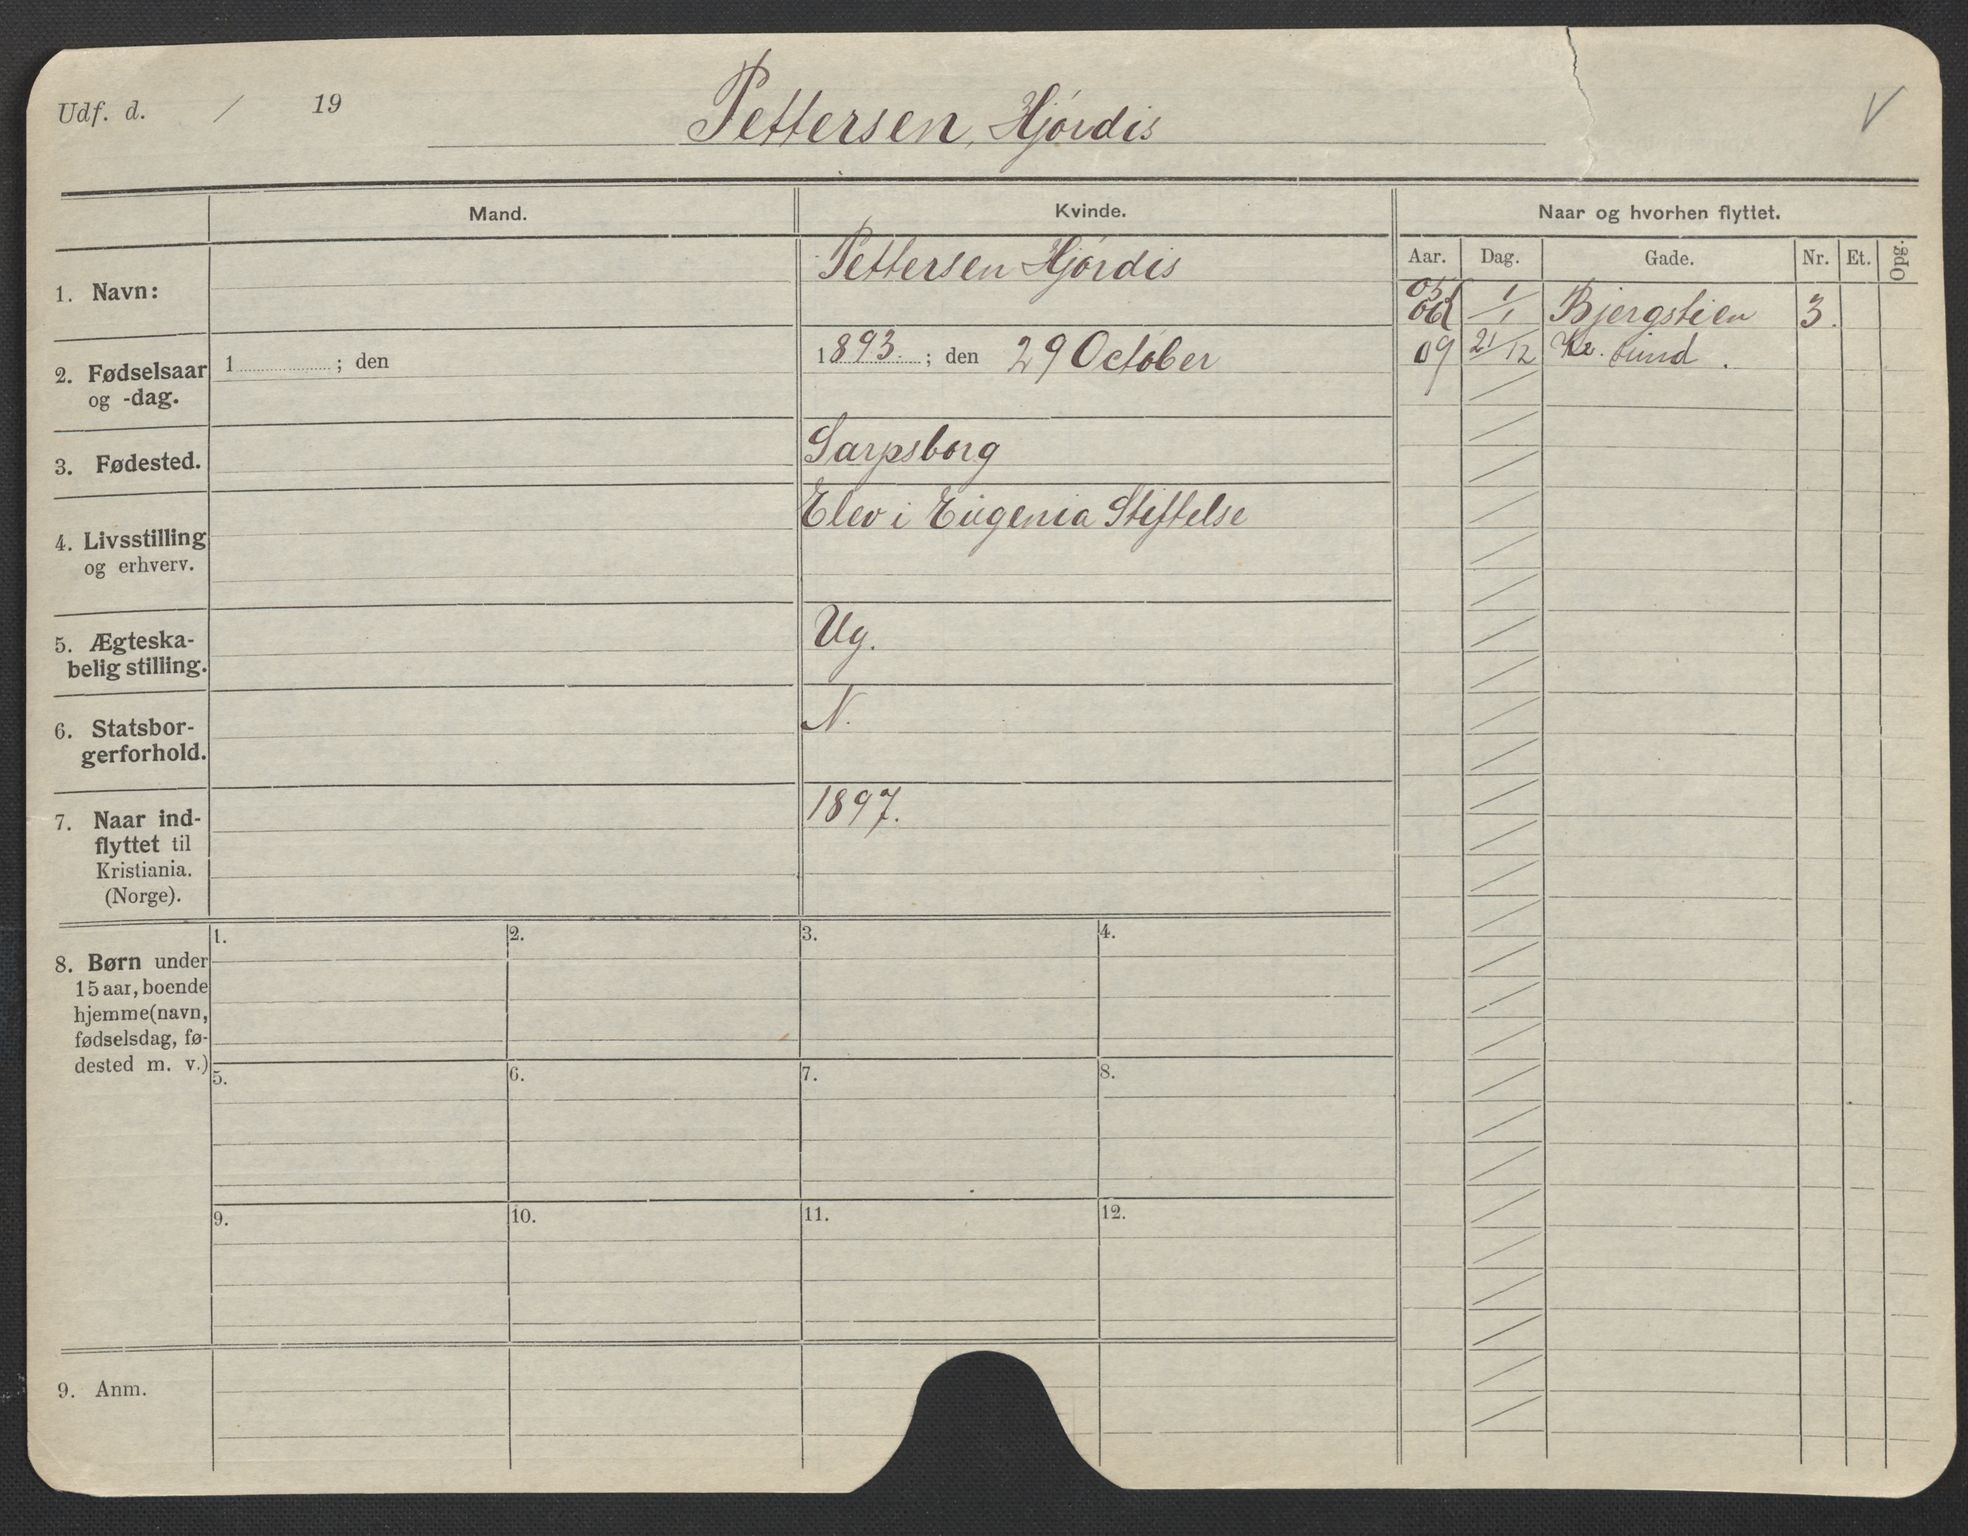 Udf. d. / 19
Pettersen, Hjórdis
V
Mand.
Kvinde.
Naar og hvorhen flyttet.
Aar. Dag. Gade. Nr. Et. Opg.
1. Navn:
Pettersen Hjórdis
05
06 1/1 Bjergstien 3.
09 21/12 Kr. sund.
2. Fødselsaar
og -dag.
1 ; den
1893. ; den 29 October
3. Fødested.
Sarpsborg
4. Livsstilling
og erhverv.
Elev i Eugenia Stiftelse
5. Ægteska-
belig stilling.
Ug.
6. Statsbor-
gerforhold.
N.
7. Naar ind-
flyttet til
Kristiania.
(Norge).
1897.
8. Børn under
15 aar, boende
hjemme (navn,
fødselsdag, fø-
dested m. v.)
1. 2. 3. 4.
5. 6. 7. 8.
9. 10. 11. 12.
9. Anm.